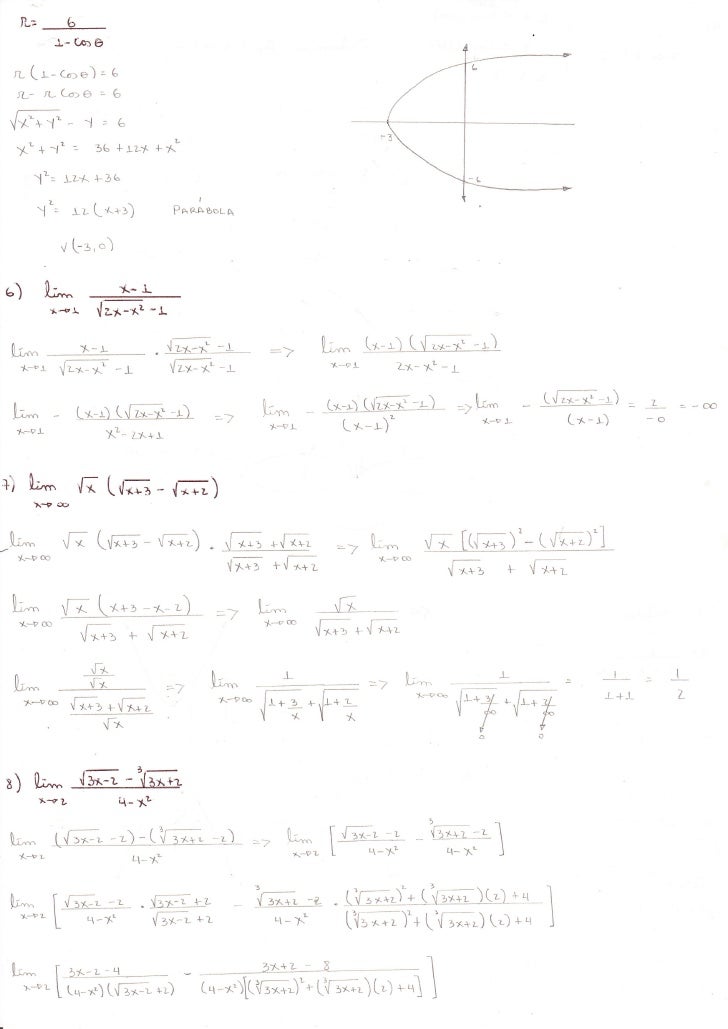 r = 6 / (1-cos θ)
r (1-cos θ) = 6
r - r cos θ = 6
√(x²+y²) - y = 6
x²+y² = 36 +12x + x²
y² = 12x +36
y² = 12 (x+3) PARÁBOLA
V (-3,0)
6
-3
-6
6) lim x→1 (x-1) / (√(2x-x²) -1)
lim x→1 (x-1) / (√(2x-x²) -1) · (√(2x-x²) -1) / (√(2x-x²) -1) => lim x→1 (x-1)(√(2x-x²) -1) / (2x-x²-1)
lim x→1 - (x-1)(√(2x-x²) -1) / (x²-2x+1) => lim x→1 - (x-1)(√(2x-x²) -1) / (x-1)² => lim x→1 - (√(2x-x²) -1) / (x-1) = 2 / -0 = -∞
7) lim x→∞ √x (√(x+3) - √(x+2))
lim x→∞ √x (√(x+3) - √(x+2)) · (√(x+3) + √(x+2)) / (√(x+3) + √(x+2)) => lim x→∞ √x [(√(x+3))² - (√(x+2))²] / (√(x+3) + √(x+2))
lim x→∞ √x (x+3-x-2) / (√(x+3) + √(x+2)) => lim x→∞ √x / (√(x+3) + √(x+2))
lim x→∞ (√x / √x) / ((√(x+3) + √(x+2)) / √x) => lim x→∞ 1 / (√(1+3/x) + √(1+2/x)) => lim x→∞ 1 / (√(1+3/∞) + √(1+2/∞)) = 1 / (1+1) = 1/2
0 0
8) lim x→2 (√(3x-2) - ³√(3x+2)) / (4-x²)
lim x→2 ((√(3x-2) -2) - (³√(3x+2) -2)) / (4-x²) => lim x→2 [(√(3x-2) -2) / (4-x²) - (³√(3x+2) -2) / (4-x²)]
lim x→2 [(√(3x-2) -2) / (4-x²) · (√(3x-2) +2) / (√(3x-2) +2) - (³√(3x+2) -2) / (4-x²) · ((³√(3x+2))² + (³√(3x+2))(2) +4) / ((³√(3x+2))² + (³√(3x+2))(2) +4)]
lim x→2 [(3x-2-4) / ((4-x²)(√(3x-2) +2)) - (3x+2 - 8) / ((4-x²)[(³√(3x+2))² + (³√(3x+2))(2) +4])]